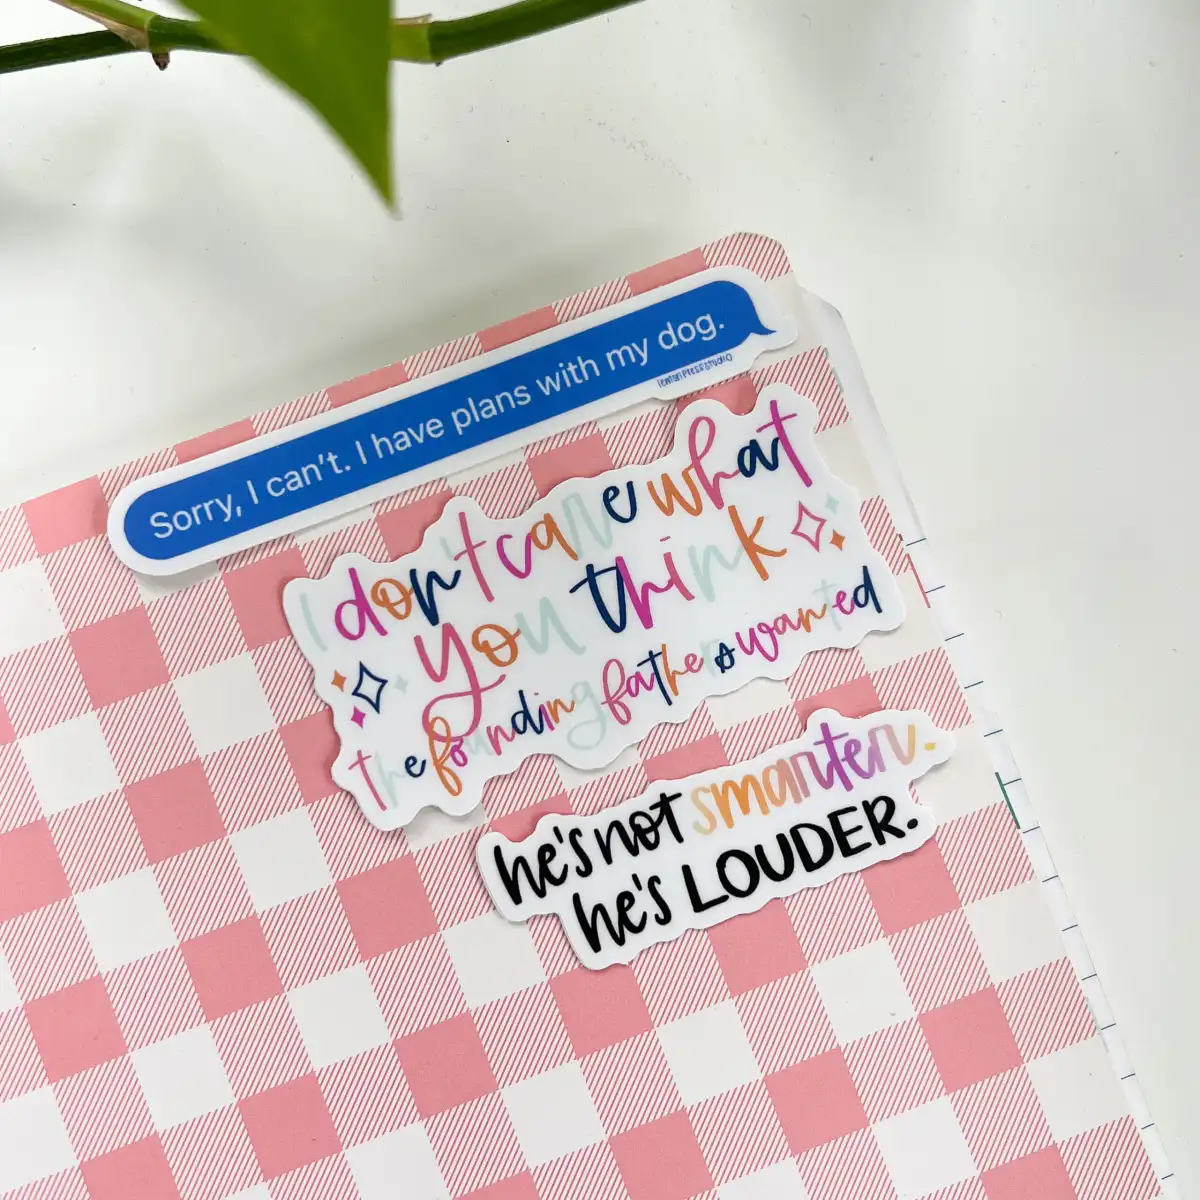 Sorry, I can't. I have plans with my dog.
TemariPressStudio
I don't care what
you think
the founding fathers wanted
he's not smarter.
he's LOUDER.